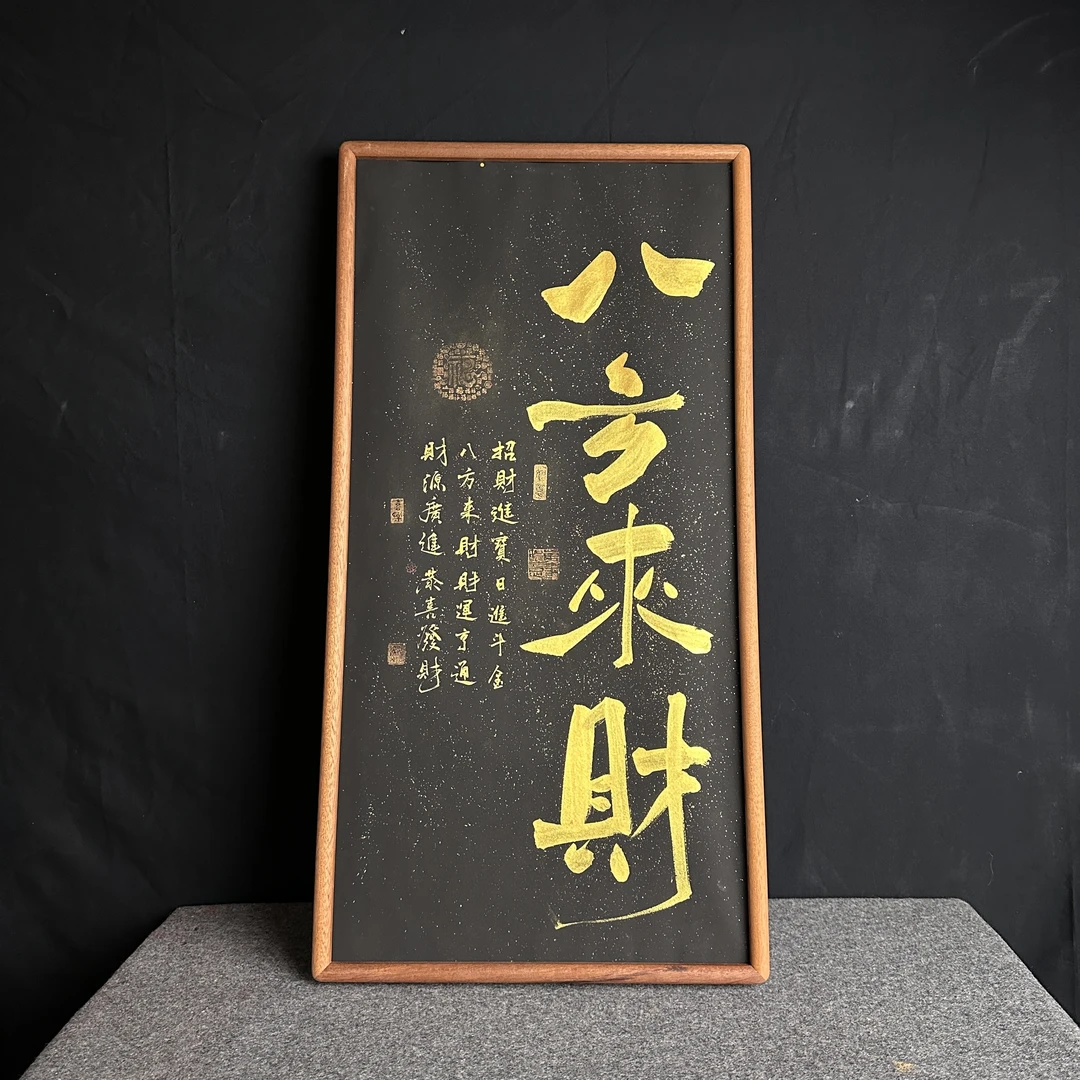 八方來財
招財進寶日進斗金
八方來財財運亨通
財源廣進恭喜發財
福